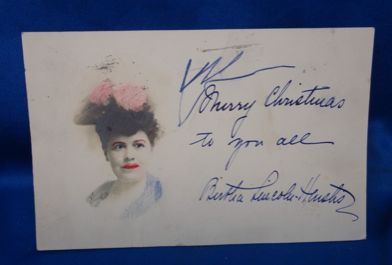 Merry Christmas
to you all
Bertha Lincoln-Heustis